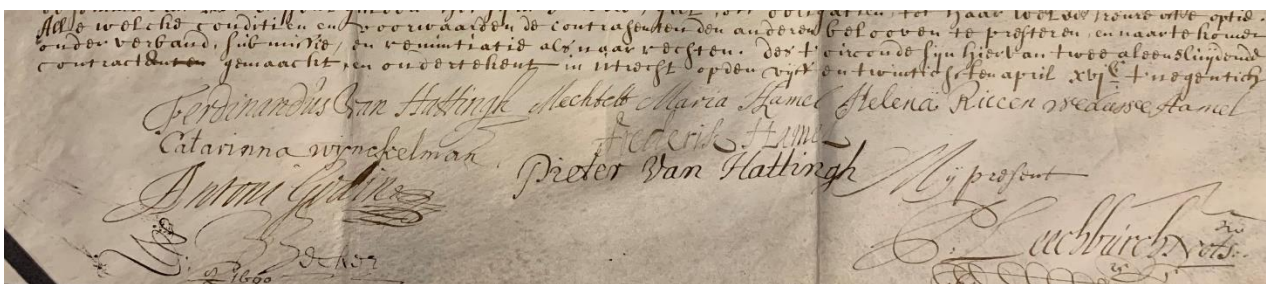 Alle welcke conditien en voorwaarden de contrahenten den anderen belooven te presteren, en naartekomen
onder verband, submissie, en renuntiatie als naar rechten. Des t'oirconde sijn hiervan twee aleensluijdende
contracten gemaackt, en onderteikent in Utrecht op den vijff en twintichsten april xvjC t'negentich
Ferdinandus Van Hattingh Mechtelt Maria Hamel Helena Riccen weduwe Hamel
Catarinna wynckelman Frederik Hamel
Antoni Pieter Van Hattingh Mij present
Becker Leechburch Nots.
1690